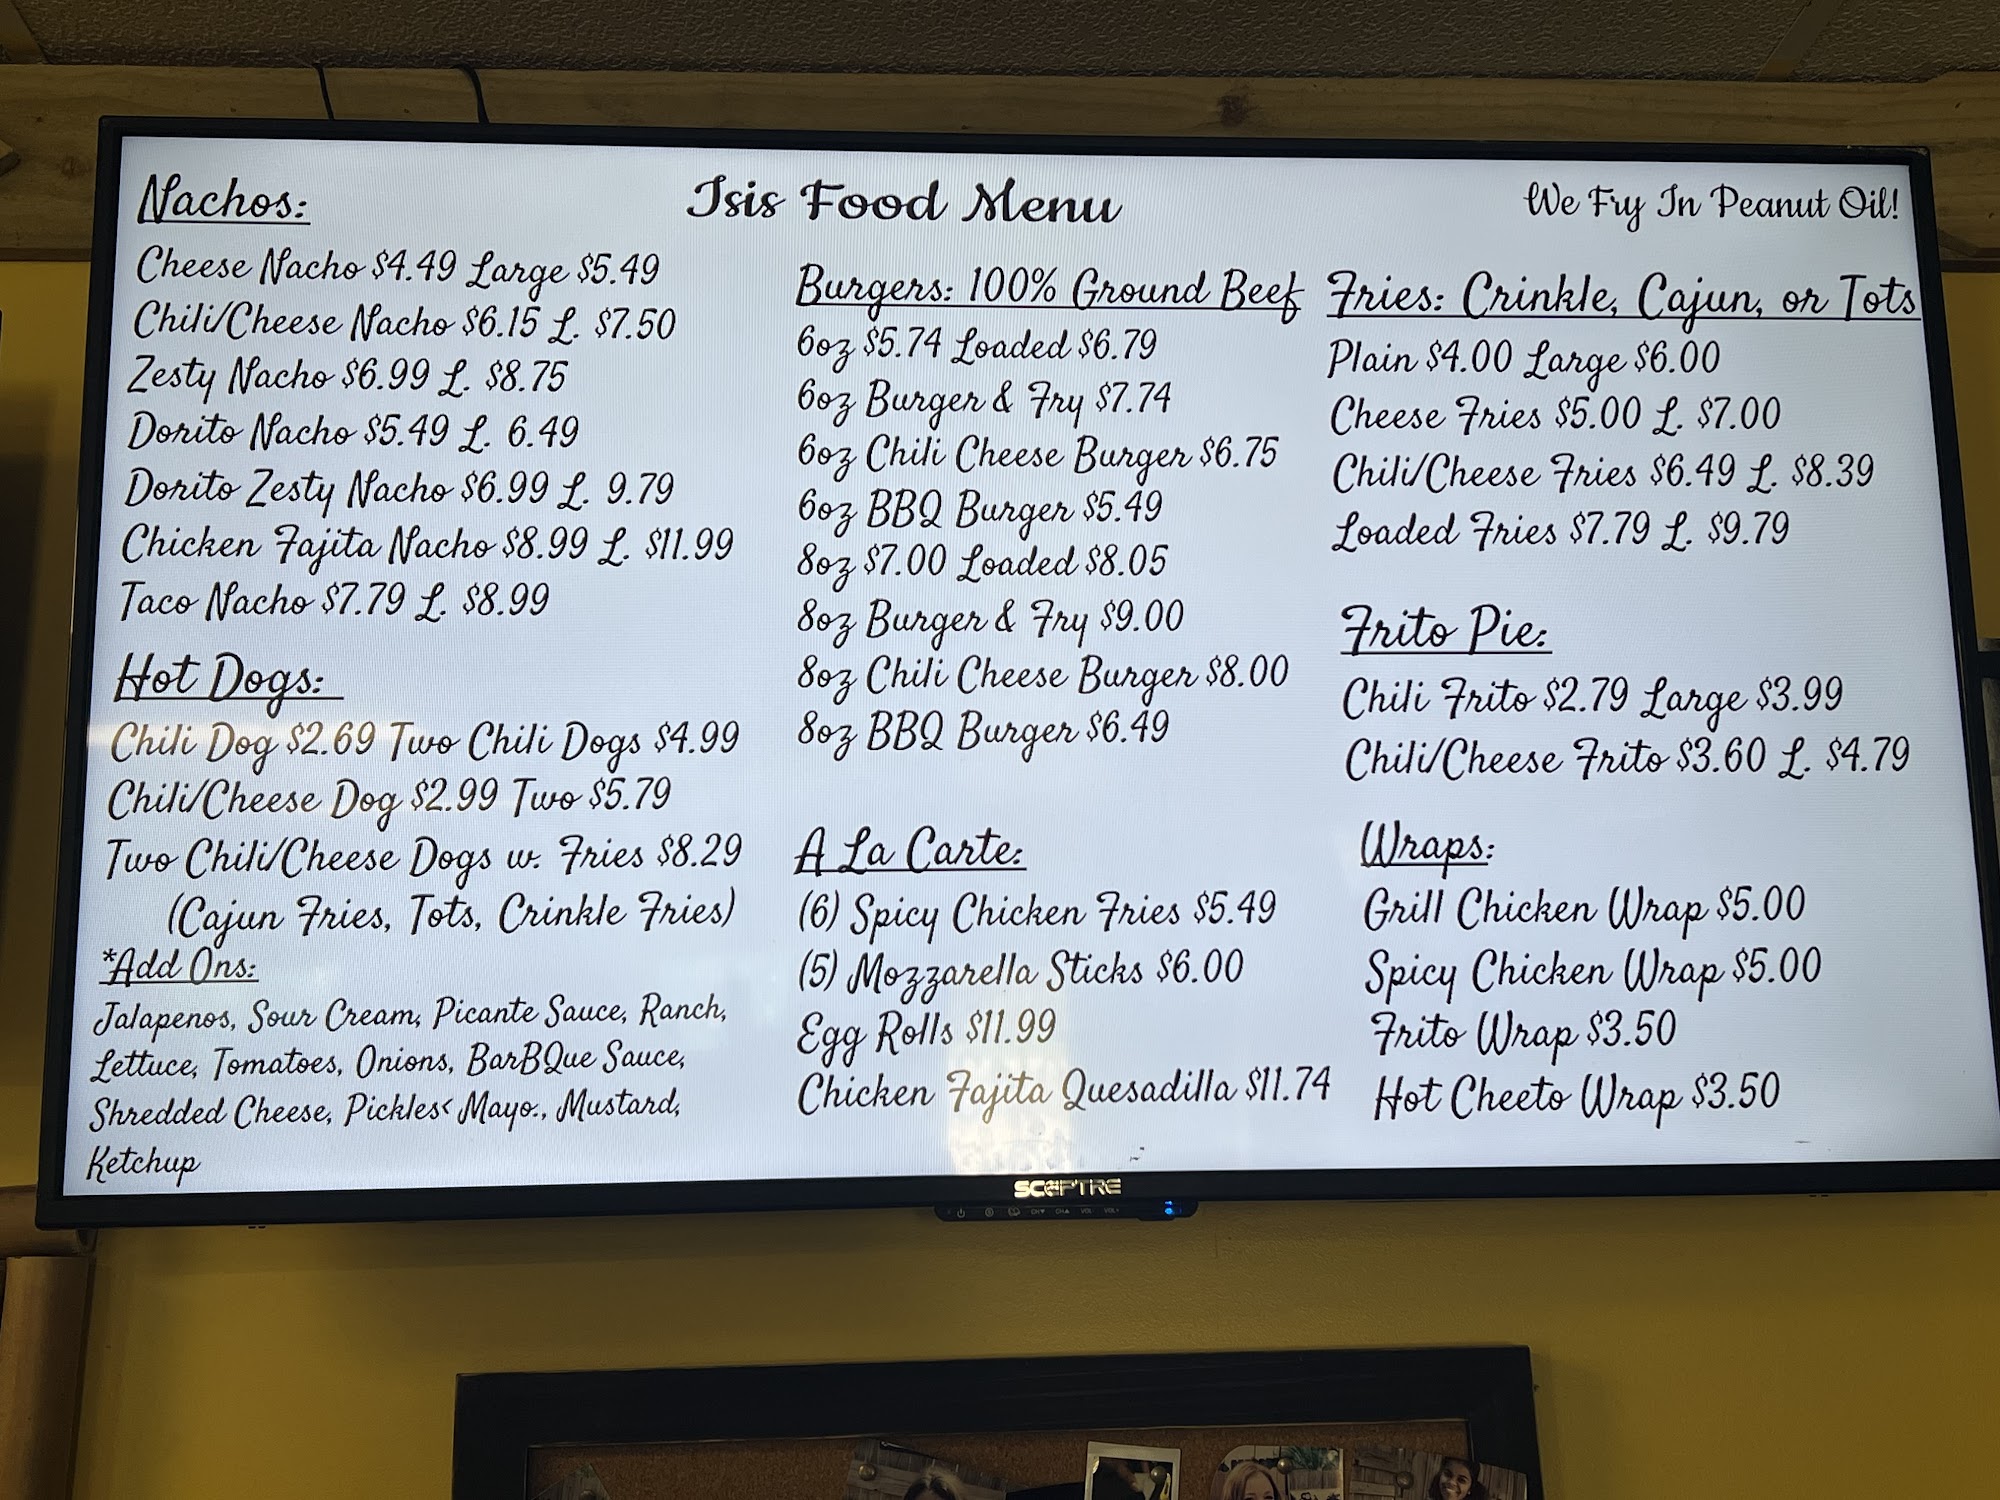 Isis Food Menu
We Fry In Peanut Oil!
Nachos:
Cheese Nacho $4.49 Large $5.49
Chili/Cheese Nacho $6.15 L. $7.50
Zesty Nacho $6.99 L. $8.75
Dorito Nacho $5.49 L. 6.49
Dorito Zesty Nacho $6.99 L. 9.79
Chicken Fajita Nacho $8.99 L. $11.99
Taco Nacho $7.79 L. $8.99
Hot Dogs:
Chili Dog $2.69 Two Chili Dogs $4.99
Chili/Cheese Dog $2.99 Two $5.79
Two Chili/Cheese Dogs w. Fries $8.29
(Cajun Fries, Tots, Crinkle Fries)
*Add Ons:
Jalapenos, Sour Cream, Picante Sauce, Ranch,
Lettuce, Tomatoes, Onions, BarBQue Sauce,
Shredded Cheese, Pickles< Mayo., Mustard,
Ketchup
Burgers: 100% Ground Beef
6oz $5.74 Loaded $6.79
6oz Burger & Fry $7.74
6oz Chili Cheese Burger $6.75
6oz BBQ Burger $5.49
8oz $7.00 Loaded $8.05
8oz Burger & Fry $9.00
8oz Chili Cheese Burger $8.00
8oz BBQ Burger $6.49
A La Carte:
(6) Spicy Chicken Fries $5.49
(5) Mozzarella Sticks $6.00
Egg Rolls $11.99
Chicken Fajita Quesadilla $11.74
Fries: Crinkle, Cajun, or Tots
Plain $4.00 Large $6.00
Cheese Fries $5.00 L. $7.00
Chili/Cheese Fries $6.49 L. $8.39
Loaded Fries $7.79 L. $9.79
Frito Pie:
Chili Frito $2.79 Large $3.99
Chili/Cheese Frito $3.60 L. $4.79
Wraps:
Grill Chicken Wrap $5.00
Spicy Chicken Wrap $5.00
Frito Wrap $3.50
Hot Cheeto Wrap $3.50
SCEPTRE
CH▼ CH▲ VOL- VOL+